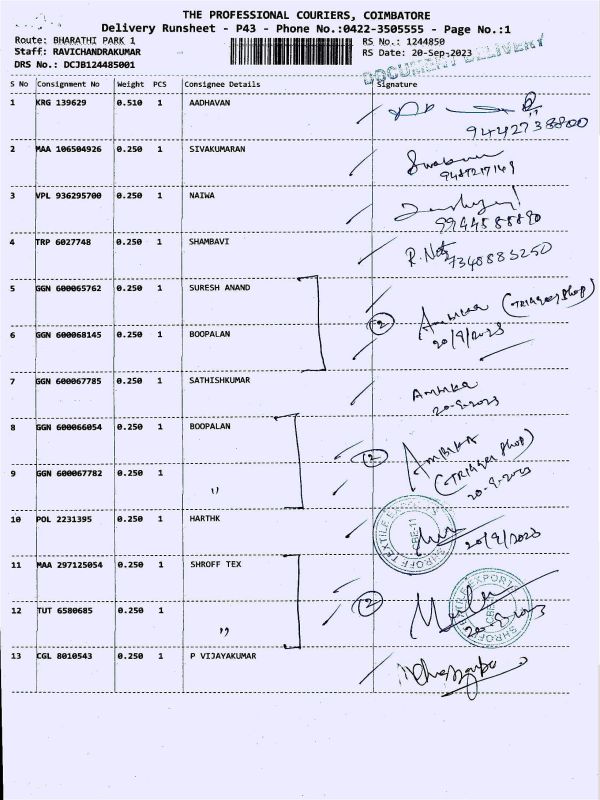 THE PROFESSIONAL COURIERS, COIMBATORE
Delivery Runsheet - P43 - Phone No.:0422-3505555 - Page No.:1
Route: BHARATHI PARK 1
Staff: RAVICHANDRAKUMAR
DRS No.: DCJB124485001
RS No.: 1244850
RS Date: 20-Sep-2023
DOCUMENT DELIVERY
S No Consignment No Weight PCS Consignee Details Signature
1 KRG 139629 0.510 1 AADHAVAN
9442738800
2 MAA 106504926 0.250 1 SIVAKUMARAN
9487217149
3 VPL 936295700 0.250 1 NAIWA
9944588890
4 TRP 6027748 0.250 1 SHAMBAVI
7348883250
5 GGN 600065762 0.250 1 SURESH ANAND
② Ambika (Trigger shop)
20/9/2023
6 GGN 600068145 0.250 1 BOOPALAN
7 GGN 600067785 0.250 1 SATHISHKUMAR
Ambika
20-9-2023
8 GGN 600066054 0.250 1 BOOPALAN
② AMBIKA
(Trigger shop)
20-9-2023
9 GGN 600067782 0.250 1 "
10 POL 2231395 0.250 1 HARTHK
20/9/2023
SHROFF TEXTILE EXPORT
CBE-11
11 MAA 297125054 0.250 1 SHROFF TEX
②
12 TUT 6580685 0.250 1 "
SHROFF TEXTILE EXPORT
CBE-11
13 CGL 8010543 0.250 1 P VIJAYAKUMAR